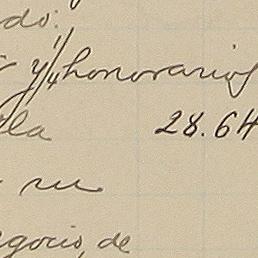 do:
y 1/4 honorarios
la 28.64
su
gocio, de